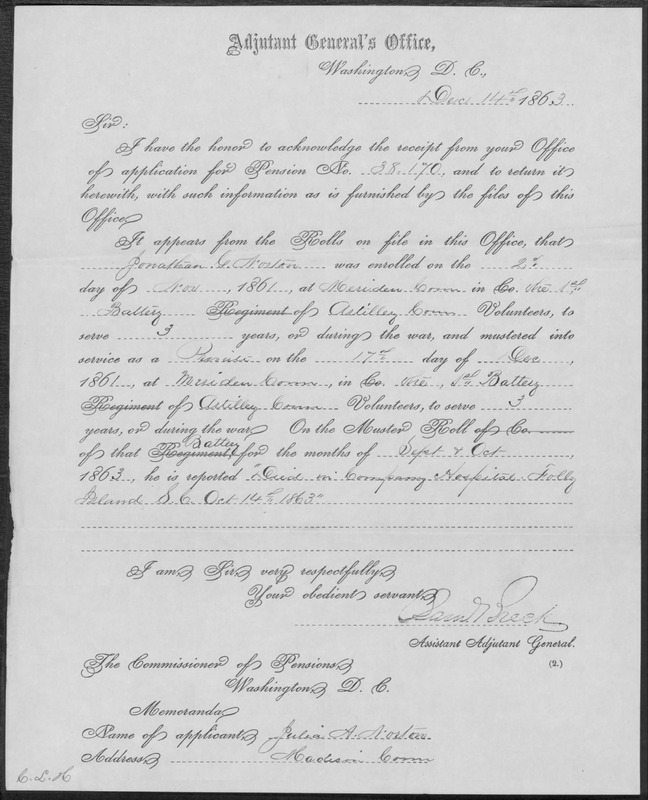 Adjutant General's Office,
Washington, D. C.,
Dec 14th 1863.
Sir:
I have the honor to acknowledge the receipt from your Office
of application for Pension No. 38.170, and to return it
herewith, with such information as is furnished by the files of this
Office.
It appears from the Rolls on file in this Office, that
Jonathan G. Norton was enrolled on the 2d
day of Nov, 1861, at Meriden Conn in Co. the 1st
Battery Regiment of Artilley Conn Volunteers, to
serve 3 years, or during the war, and mustered into
service as a Private on the 17th day of Dec,
1861, at Meriden Conn, in Co. the, 1st Battery
Regiment of Artilley Conn Volunteers, to serve 3
years, or during the war. On the Muster Roll of Co.
of that Regiment, Battery for the months of Sept & Oct,
1863, he is reported "Died in Company Hospital Folly
Island S. C. Oct 14th 1863"
I am, Sir, very respectfully,
Your obedient servant,
Saml Breck
Assistant Adjutant General.
(2.)
The Commissioner of Pensions,
Washington, D. C.
Memoranda
Name of applicant, Julia A. Norton
Address, Madison Conn
C. L. H